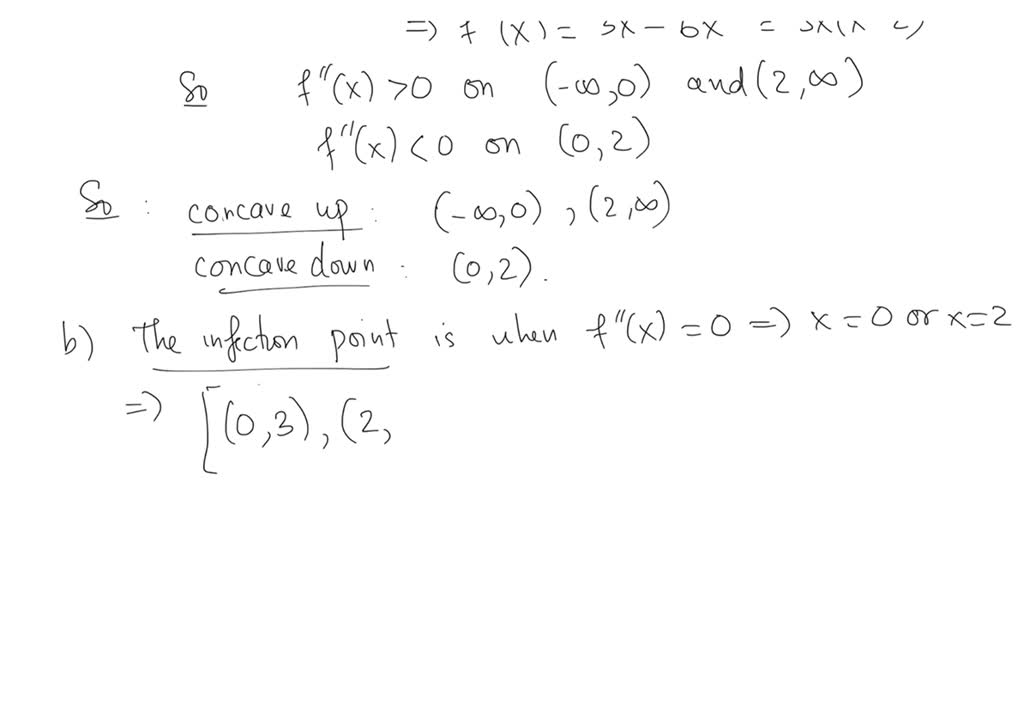 So f''(x) >0 on (-∞,0) and (2,∞)
f''(x) <0 on (0,2)
So : concave up : (-∞,0) , (2,∞)
concave down : (0,2).
b) The infection point is when f''(x) =0 => x=0 or x=2
=> [(0,3), (2,